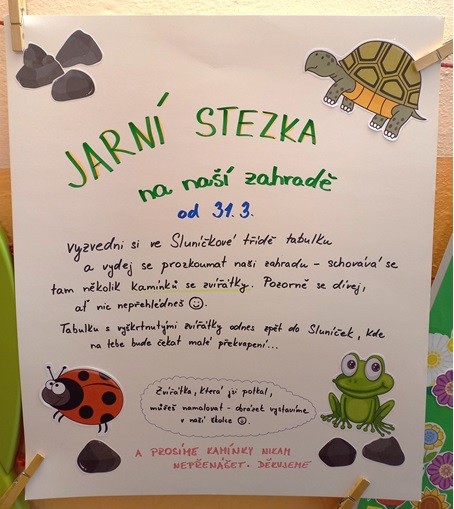 JARNÍ STEZKA
na naší zahradě
od 31.3.
Vyzvedni si ve Sluníčkové třídě tabulku
a vydej se prozkoumat naši zahradu - schovává se
tam několik kamínků se zvířátky. Pozorně se dívej,
ať nic nepřehlédneš ☺.
Tabulku s vyškrtnutými zvířátky odnes zpět do Sluníček, kde
na tebe bude čekat malé překvapení...
Zvířátka, která jsi potkal,
můžeš namalovat - obrázek vystavíme
v naší školce ☺.
A PROSÍME KAMÍNKY NIKAM
NEPŘENÁŠET. DĚKUJEME